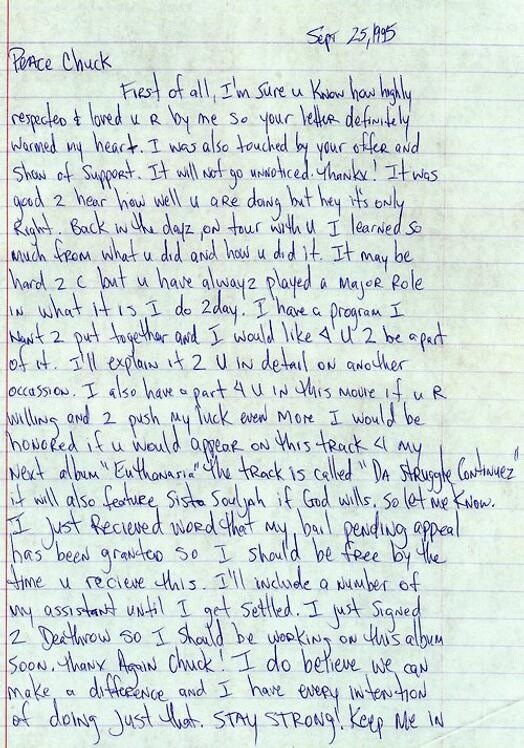 Sept 25, 1995
PEACE Chuck
First of all, I'm sure u know how highly
respected & loved u R by me so your letter definitely
warmed my heart. I was also touched by your offer and
show of support. It will not go unnoticed. Thankx! It was
good 2 hear how well u are doing but hey it's only
Right. Back in the dayz on tour with u I learned so
much from what u did and how u did it. It may be
hard 2 c but u have alwayz played a major Role
in what it is I do 2day. I have a program I
want 2 put together and I would like 4 U 2 be a part
of it. I'll explain it 2 U in detail on another
occassion. I also have a part 4 U in this movie if u R
willing and 2 push my luck even more I would be
honored if u would appear on this track 4 my
next album "Euthanasia" the track is called "Da Struggle Continuez"
it will also feature Sista Souljah if God wills. So let me know.
I just Recieved word that my bail pending appeal
has been granted so I should be free by the
time u recieve this. I'll include a number of
my assistant until I get settled. I just signed
2 Deathrow so I should be working on this album
soon. Thanx Again Chuck! I do believe we can
make a difference and I have every intention
of doing just that. STAY STRONG! Keep Me in